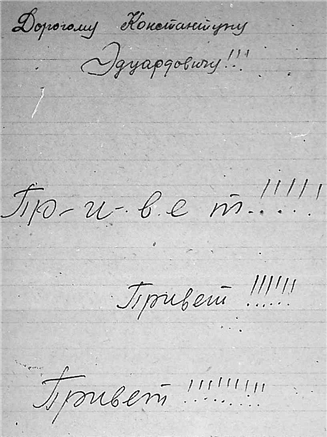 Дорогому Константину
Эдуардовичу!!!
Пр-и-в.е т.!!!!!
Привет !!!!!!
Привет !!!!!!!!!